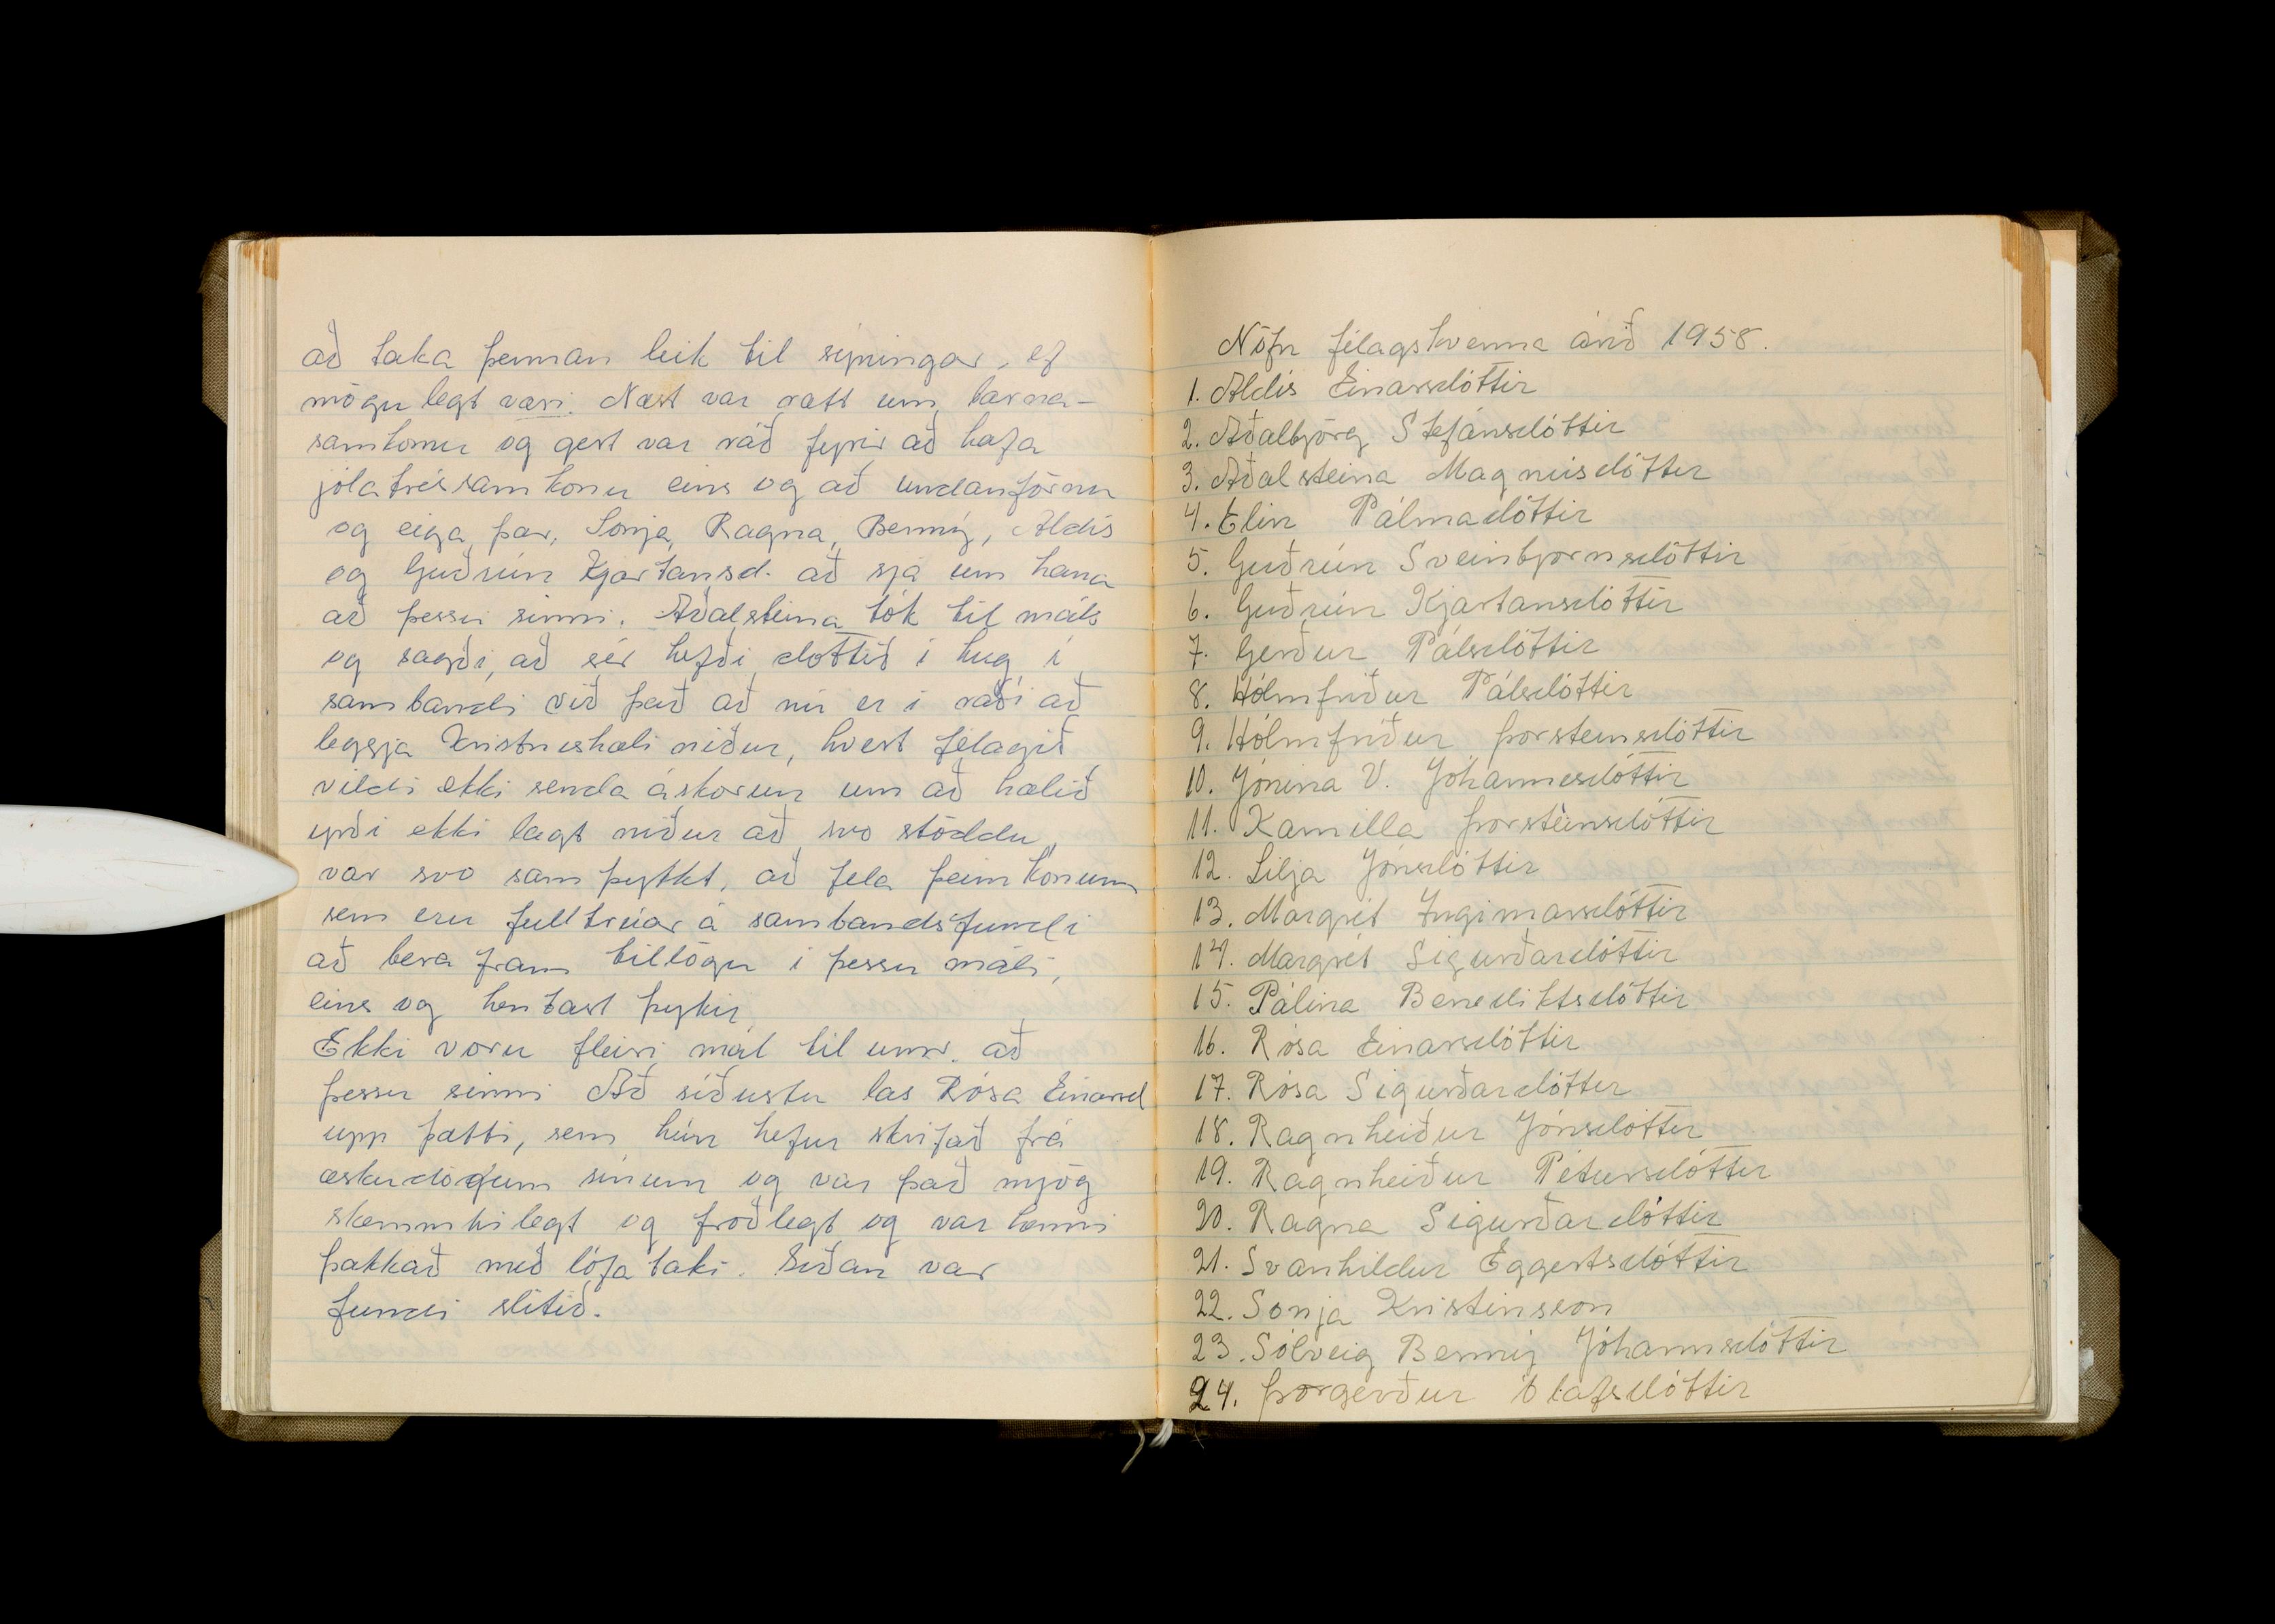 að taka þennan leik til sýningar, ef
mögulegt væri. Næst var rætt um barna-
samkomu og gert var ráð fyrir að hafa
jólatréssamkomu eins og að undanförnu
og eiga þær, Sonja, Ragna, Benný, Aldís
og Guðrún Kjartansd. að sjá um hana
að þessu sinni. Aðalsteina tók til máls
og sagði, að sér hefði dottið í hug, í
sambandi við það að nú er í ráði að
leggja Kristneshæli niður, hvert félagið
vildi ekki senda áskorun um að hælið
yrði ekki lagt niður að svo stöddu,
var svo samþykkt, að fela þeim konum
sem eru fulltrúar á sambandsfundi
að bera fram tillögu í þessu máli,
eins og hentast þykir.
Ekki voru fleiri mál til umr. að
þessu sinni Að síðustu las Rósa Einarsd
upp þátti, sem hún hefur skrifað frá
æskudögum sínum og var það mjög
skemmtilegt og fróðlegt og var henni
þakkað með lófataki. Síðan var
fundi slitið.
Nöfn félagskvenna árið 1958.
1. Aldís Einarsdóttir
2. Aðalbjörg Stefánsdóttir
3. Aðalsteina Magnúsdóttir
4. Elín Pálmadóttir
5. Guðrún Sveinbjörnsdóttir
6. Guðrún Kjartansdóttir
7. Gerður Pálsdóttir
8. Hólmfríður Pálsdóttir
9. Hólmfríður Þorsteinsdóttir
10. Jónína V. Jóhannesdóttir
11. Kamilla Þorsteinsdóttir
12. Lilja Jónsdóttir
13. Margrét Ingimarsdóttir
14. Margrét Sigurðardóttir
15. Pálína Benediktsdóttir
16. Rósa Einarsdóttir
17. Rósa Sigurðardóttir
18. Ragnheiður Jónsdóttir
19. Ragnheiður Pétursdóttir
20. Ragna Sigurðardóttir
21. Svanhildur Eggertsdóttir
22. Sonja Kristinsson
23. Sólveig Benný Jóhannsdóttir
24. Þorgerður Ólafsdóttir